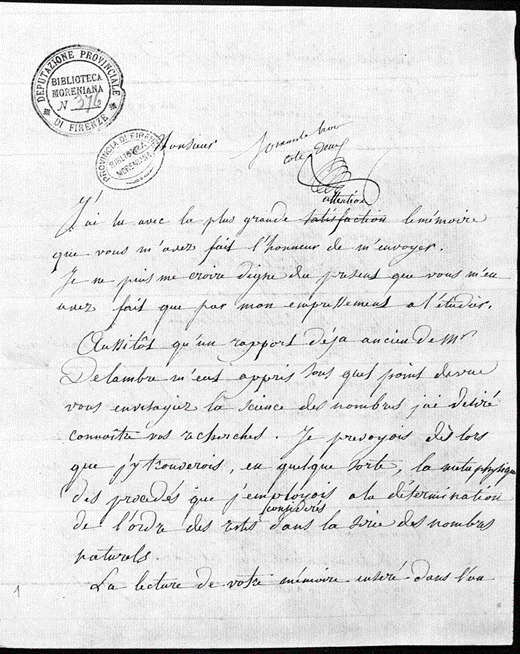 DEPUTAZIONE PROVINCIALE
DI FIRENZE
BIBLIOTECA
MORENIANA
N 376
PROVINCIA DI FIRENZE
BIBLIOTECA
MORENIANA
Monsieur
attention
J'ai lu avec la plus grande satisfaction le mémoire
que vous m'avez fait l'honneur de m'envoyer.
Je ne puis me croire digne du present que vous m'en
avez fait que par mon empressement a l'étudier.
Aussitôt qu'un rapport déja ancien de Mr
Delambre m'eut appris sous quel point de vue
vous envisagiez la science des nombres j'ai désiré
connoitre vos recherches. Je prevoyois dès lors
que j'y trouverois, en quelque sorte, la metaphysique
des procedés que j'employois a la détermination
considerés
de l'ordre des restes dans la serie des nombres
naturels.
La lecture de votre mémoire inseré dans l'un
1